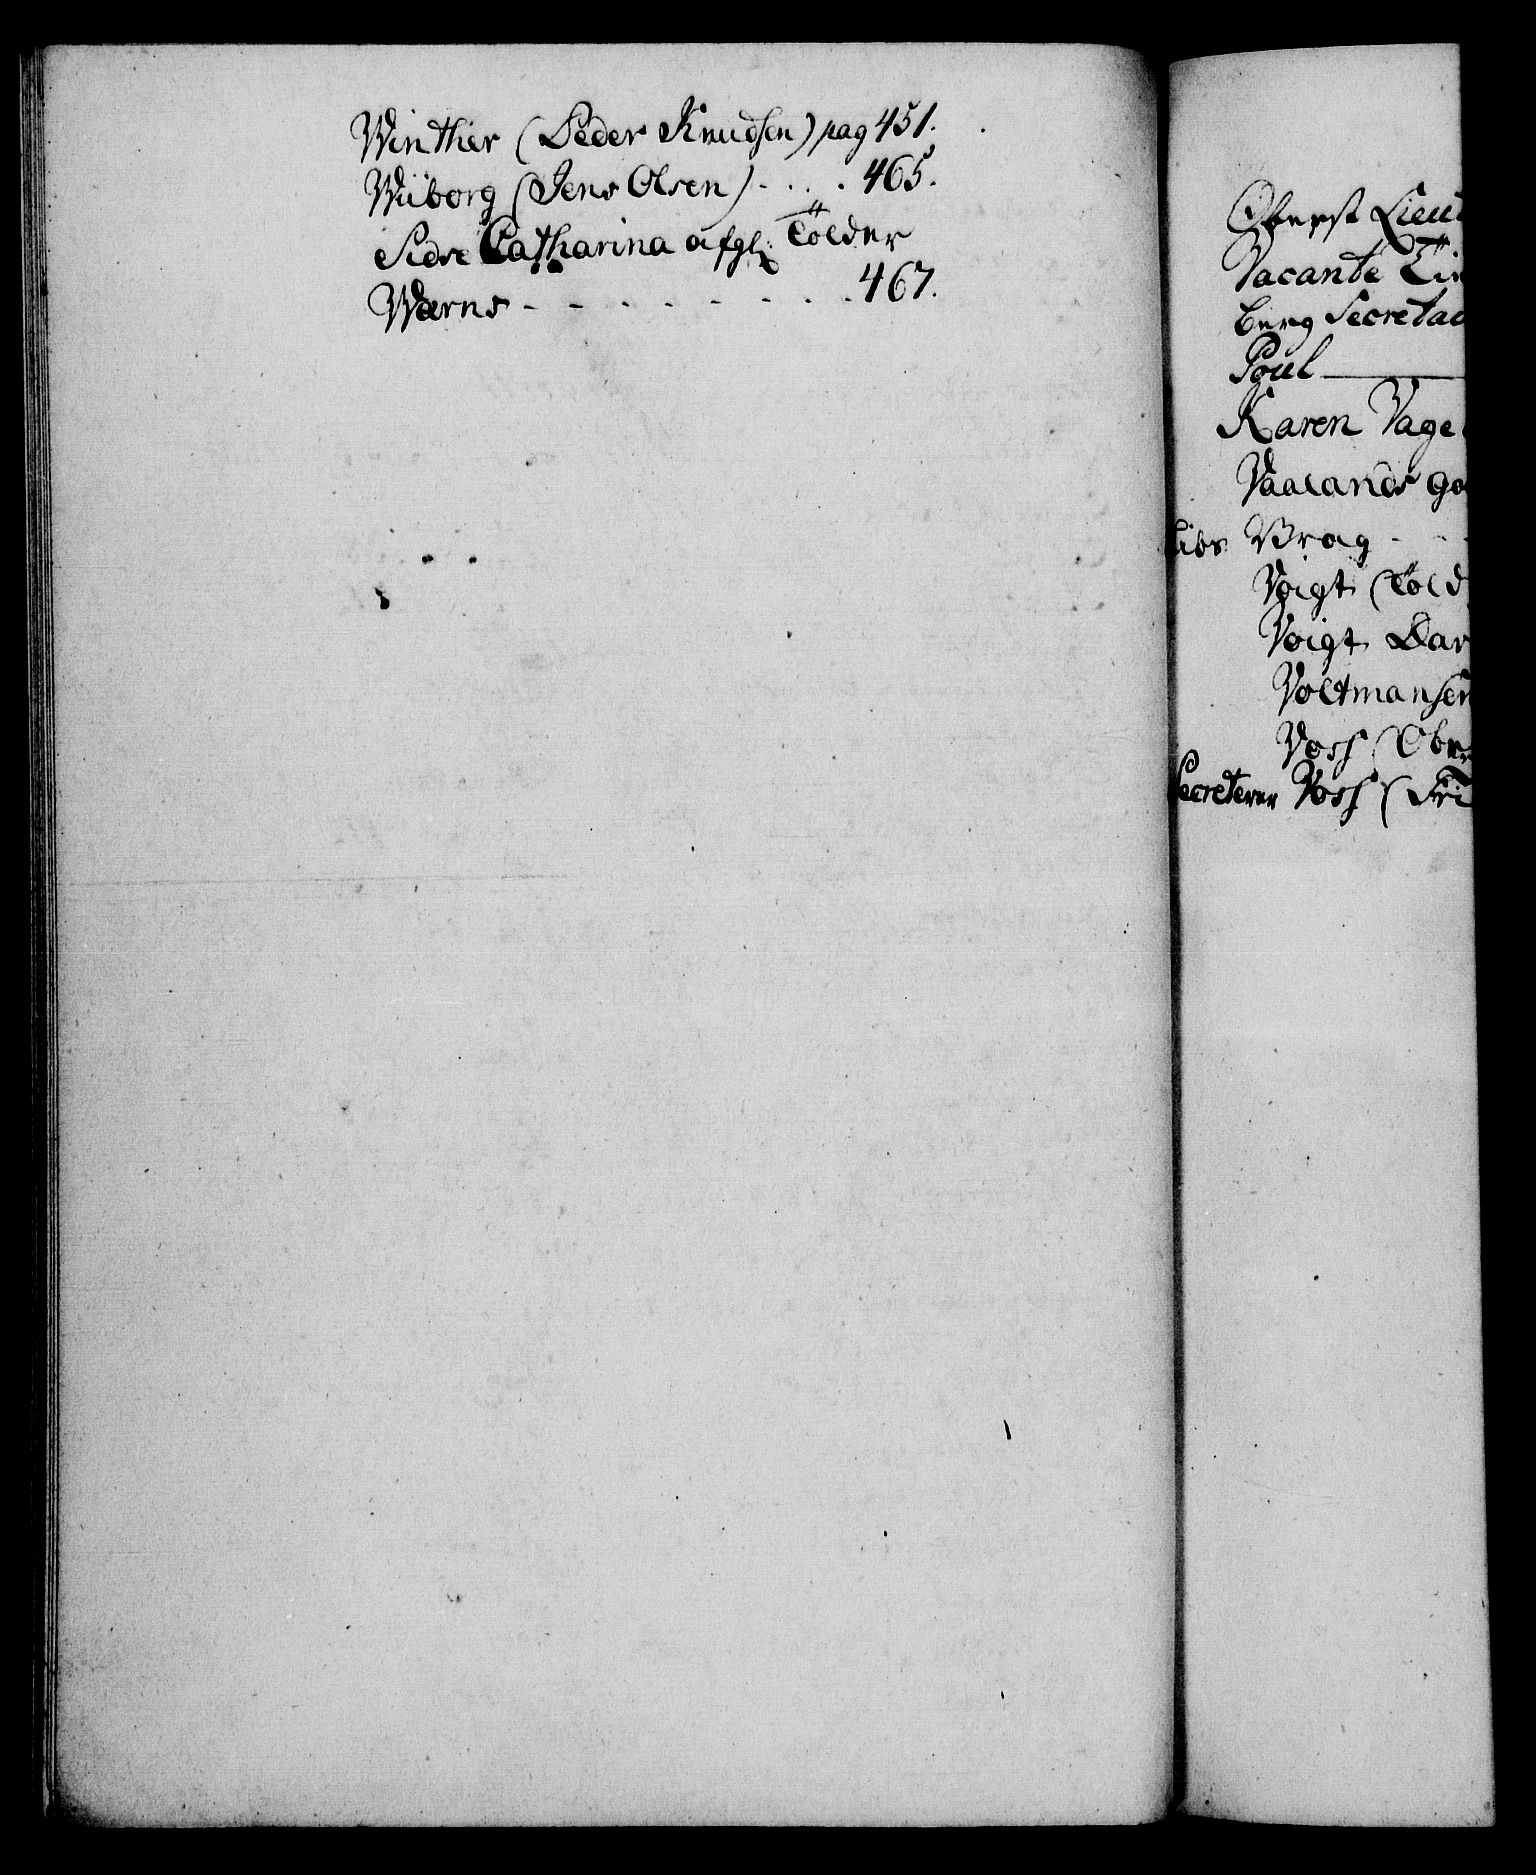 Winther (Peder Knudsen) pag 451.
Wiborg (Jens Olsen) - . . . 465.
Sidse Catharina afgl: Tolder
Wærns - - - . . - - . . 467.
Oberst Lieut
Vacante
berg Secreta
Poul
Karen Vage
Vaalands go
Brag - -
Voigt (Told
Voigt Lar
Voltmansen
Voss (Obr
Secreterer Voss (Fri